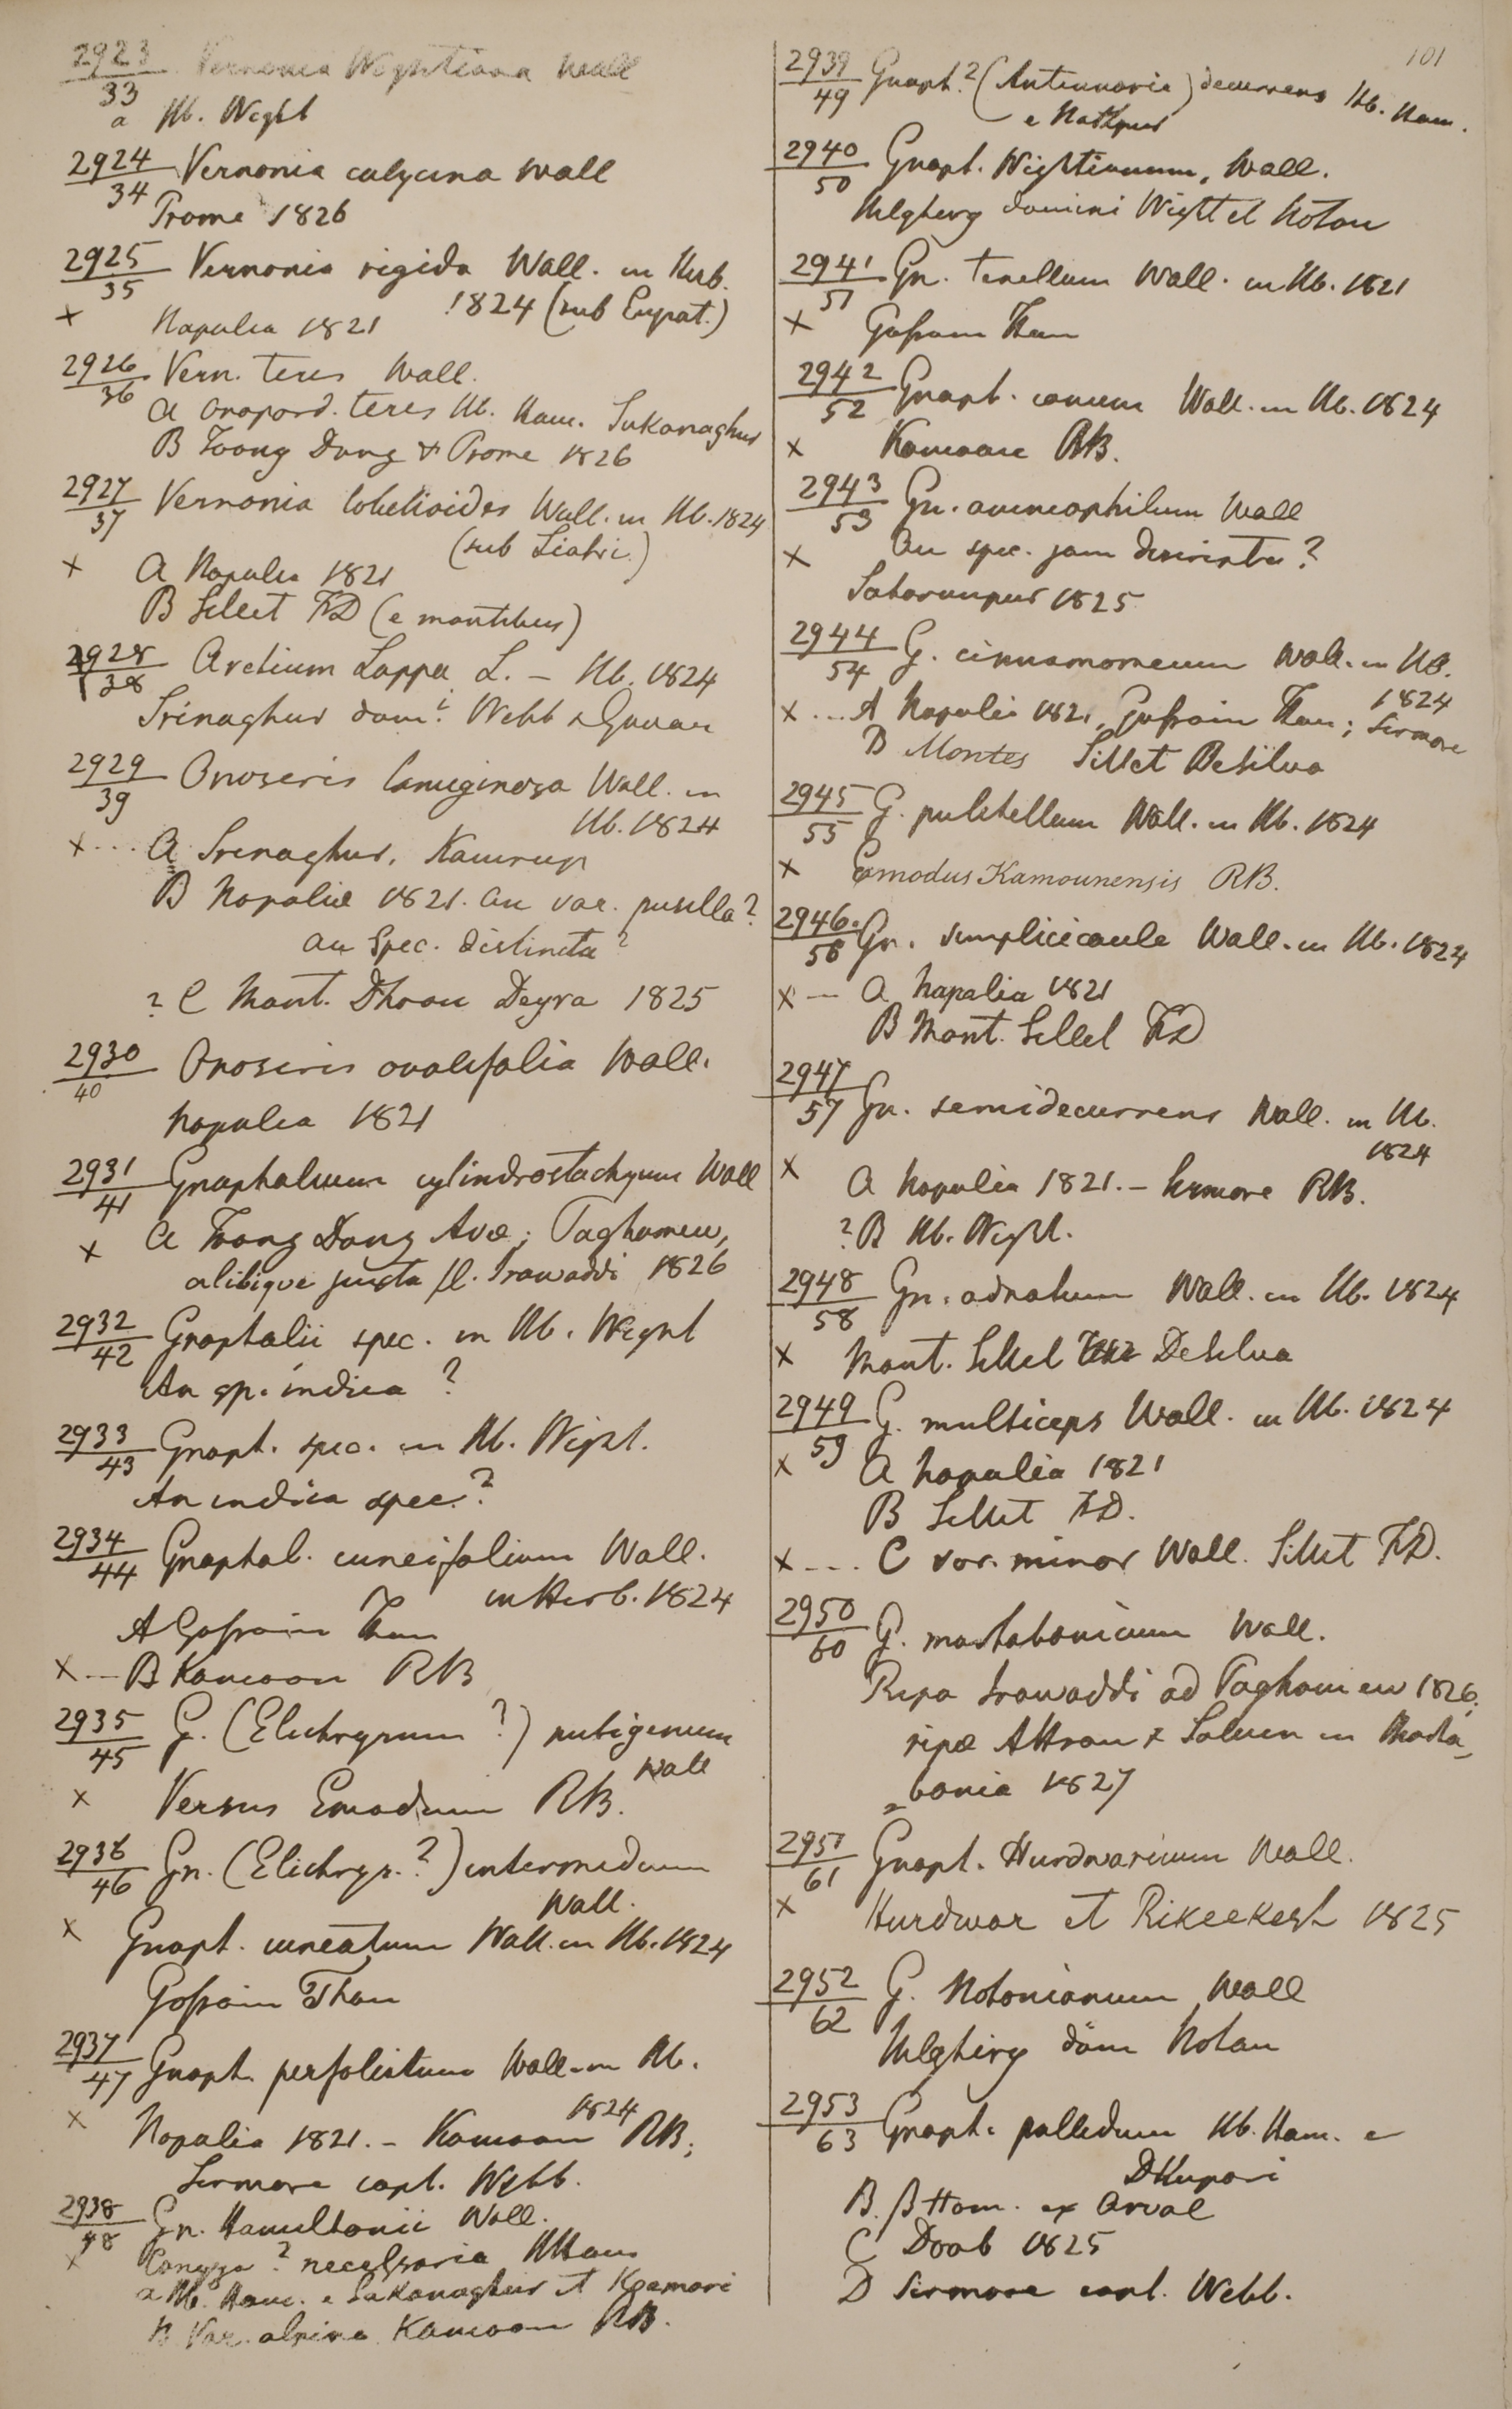 101
2923/33 Vernonia Wightiana Wall
a Hb. Wight
2924/34 Vernonia calycina Wall
Prome 1826
2925/35 Vernonia rigida Wall. in Herb.
1824 (sub Eupat.)
x Napalia 1821
2926/36 Vern. teres Wall.
A Onopord. teres Hb. Ham. Sukanaghur
B Toong Dong & Prome 1826
2927/37 Vernonia lobelioides Wall. in Hb. 1824
(sub Liatri.)
x A Napalia 1821
B Sillet FD (e montibus)
2928/38 Arctium Lappa L. – Hb. 1824
Srinaghur dom. Webb & Govan
2929/39 Onoseris lanuginosa Wall. in
Hb. 1824
x ... A Srenaghur, Kamrup
B Napaliæ 1821. an var. pusilla?
an Spec. distincta?
? C Mont. Dhoon Deyra 1825
2930/40 Onoseris ovalifolia Wall.
Napalia 1821
2931/41 Gnaphalium cylindrostachyum Wall
x A Toong Dong Avæ; Taghamew,
alibique juxta fl. Irawaddi 1826
2932/42 Gnaphalii spec. in Hb. Wight
An sp. indica?
2933/43 Gnaph. spec. in Hb. Wight.
An indica spec.?
2934/44 Gnaphal. cuneifolium Wall.
in Herb. 1824
A Gossain Than
x --- B Kamoon RB
2935/45 G. (Elichrysum?) nubigenum
Wall
x Versus Emodum RB.
2936/46 Gn. (Elichrys.?) intermedium
Wall.
x Gnaph. cuneatum Wall. in Hb. 1824
Gossain Than
2937/47 Gnaph. perfoliatum Wall. in Hb.
1824
x Napalia 1821. – Kamoon RB;
Sirmore capt. Webb.
2938/48 Gn. Hamiltonii Wall.
x Conyza? necessaria HHam
a Hb. Ham. e Sukanaghur et Koamari
B Var. alpina Kamoon RB.
2939/49 Gnaph.? (Antennaria) decurrens Hb. Ham.
e Nathpur
2940/50 Gnaph. Wightianum, Wall.
Nilgherry domini Wight et Noton
2941/51 Gn. tenellum Wall. in Hb. 1821
x Gossain Than
2942/52 Gnaph. canum Wall. in Hb. 1824
x Kamoon RB.
2943/53 Gn. ammophilum Wall
x An spec. jam descripta?
Saharunpur 1825
2944/54 G. cinnamomeum Wall. in Hb.
1824
x ... A Napalia 1821, Gossain Than; Sirmore
B Montes Sillet DeSilva
2945/55 G. pulchellum Wall. in Hb. 1824
x Emodus Kamounensis RB.
2946/56 Gn. simplicicaule Wall. in Hb. 1824
x -- A Napalia 1821
B Mont. Sillet FD
2947/57 Gn. semidecurrens Wall. in Hb.
1824
x A Napalia 1821. – Sirmore RB.
? B Hb. Wight.
2948/58 Gn. adnatum Wall. in Hb. 1824
x Mont. Sillet DeSilva
2949/59 G. multiceps Wall. in Hb. 1824
x A Napalia 1821
B Sillet FD.
x ... C var. minor Wall. Sillet FD.
2950/60 G. martabanicum Wall.
Ripa Irawaddi ad Paghamew 1826,
ripæ Attran & Saluen in Marta-
-bania 1827
2951/61 Gnaph. Hurdwaricum Wall.
x Hurdwar et Rikeekesh 1825
2952/62 G. Notonianum Wall
Nilghiry dom Noton
2953/63 Gnaph. pallidum Hb. Ham. e
DKupari
B. β Ham. ex Arval
C Doab 1825
D Sirmore capt. Webb.